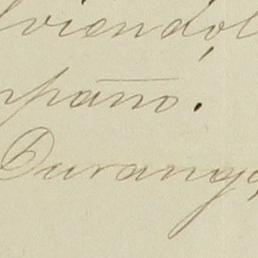 lviendol
npaño.
Durango,